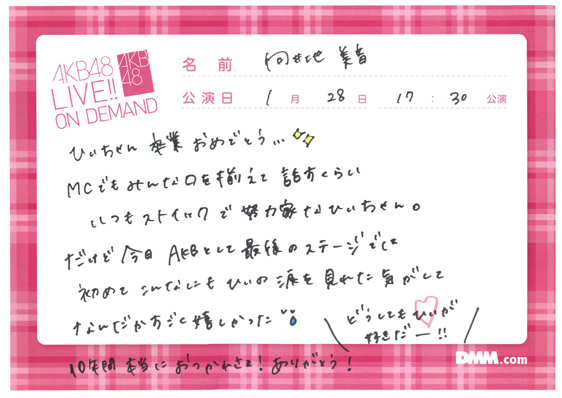 AKB48
LIVE!!
ON DEMAND
AKB
48
名前 向井地 美音
公演日 1月 28日 17:30 公演
ひぃちゃん 卒業 おめでとう...
MCでもみんな口を揃えて 話すくらい
いつもストイックで 努力家なひぃちゃん。
だけど 今日 AKBとして 最後のステージでは
初めて こんなにも ひぃの 涙を 見れた 気がして
なんだかすごく 嬉しかった
どうしても ひぃが
好きだー!!
10年間 本当に おつかれさま! ありがとう!
DMM.com